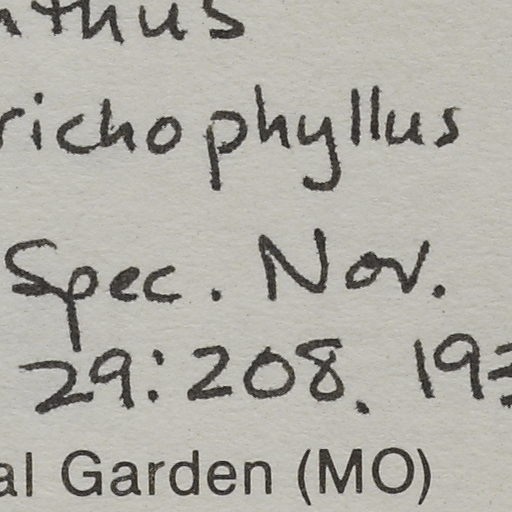 nthus
richophyllus
Spec. Nov.
29:208. 193
al Garden (MO)